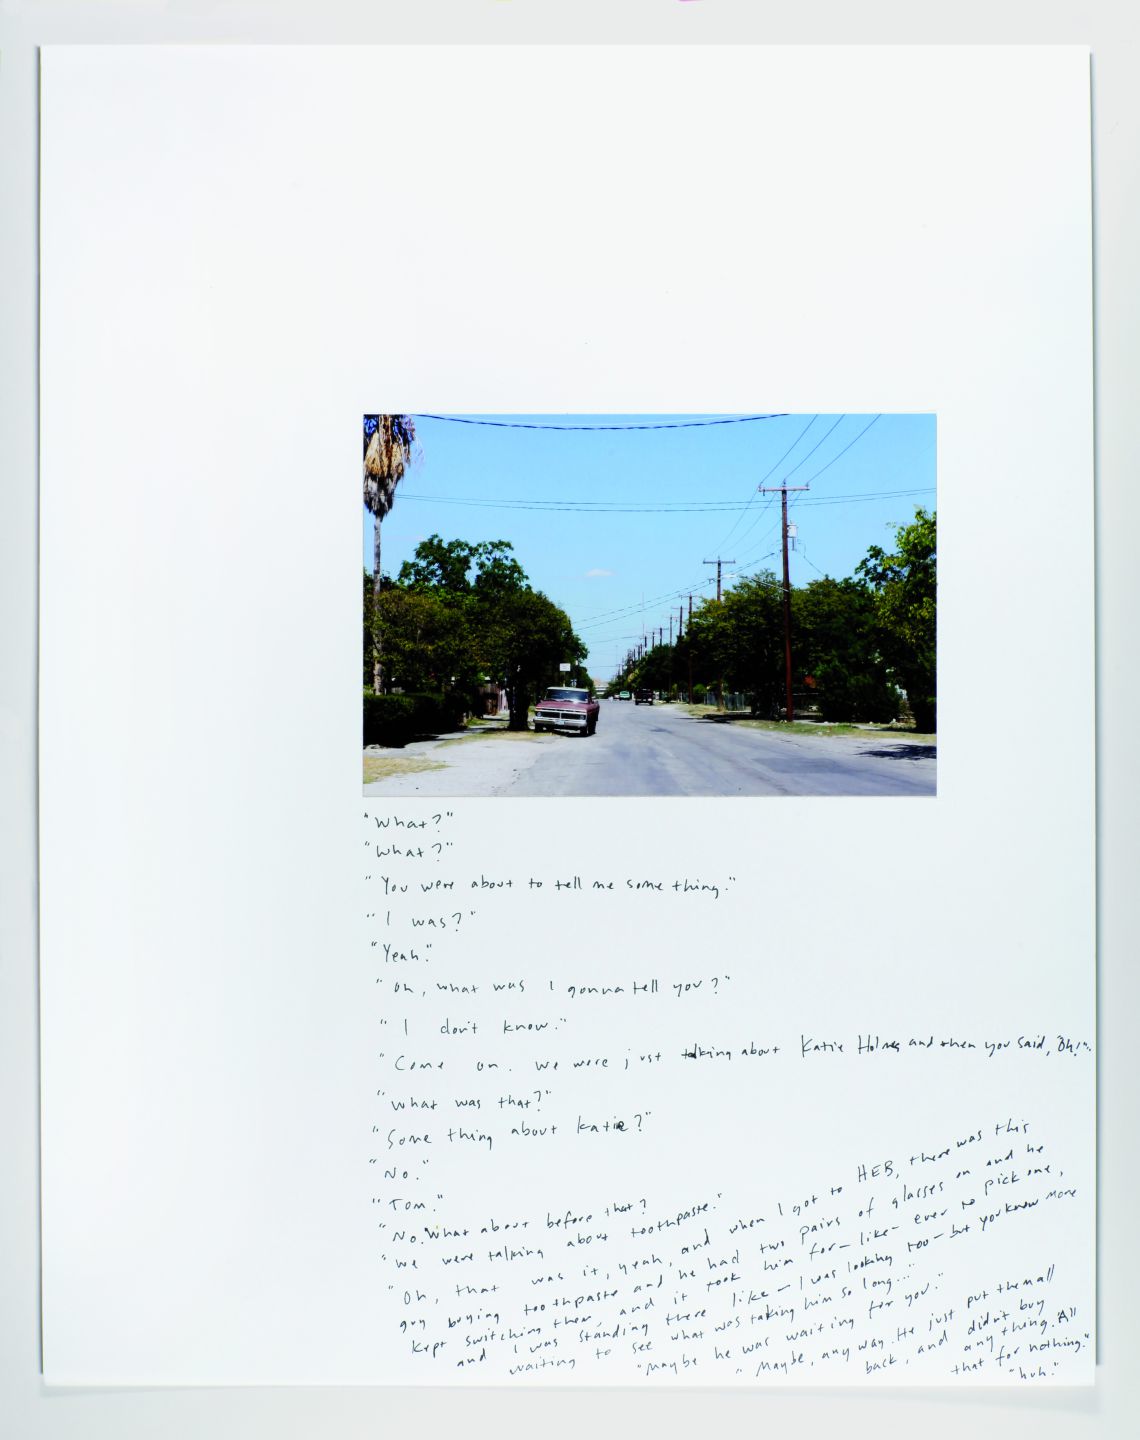 "What?"
"What?"
"You were about to tell me something."
"I was?"
"Yeah."
"Oh, what was I gonna tell you?"
"I don't know."
"Come on. We were just talking about Katie Holmes and then you said, "Oh!"."
"What was that?"
"Something about Katie?"
"No."
"Tom."
"No. What about before that?
"We were talking about toothpaste."
"Oh, that was it, yeah, and when I got to HEB, there was this
guy buying toothpaste and he had two pairs of glasses on and he
kept switching them, and it took him for—like—ever to pick one,
and I was standing there like—I was looking too—but you know more
waiting to see what was taking him so long..."
"Maybe he was waiting for you."
"Maybe, anyway. He just put them all
back, and didn't buy
anything. All
that for nothing."
"huh."